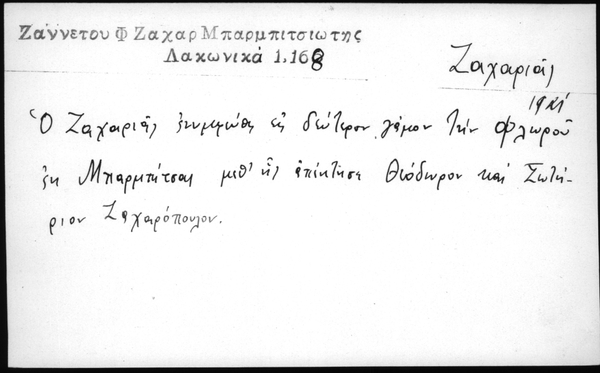 Ζαννετου Φ Ζαχαρ Μπαρμπιτσιωτης
Λακωνικά 1,168
Ζαχαριᾶς
Ὁ Ζαχαριᾶς ἐνυμφώθη εἰς δεύτερον γάμον τὴν Φλωροῦ
ἐκ Μπαρμπίτσας μεθ' ἧς ἀπέκτησε Θεόδωρον καὶ Σωτή-
ριον Ζαχαρόπουλον.